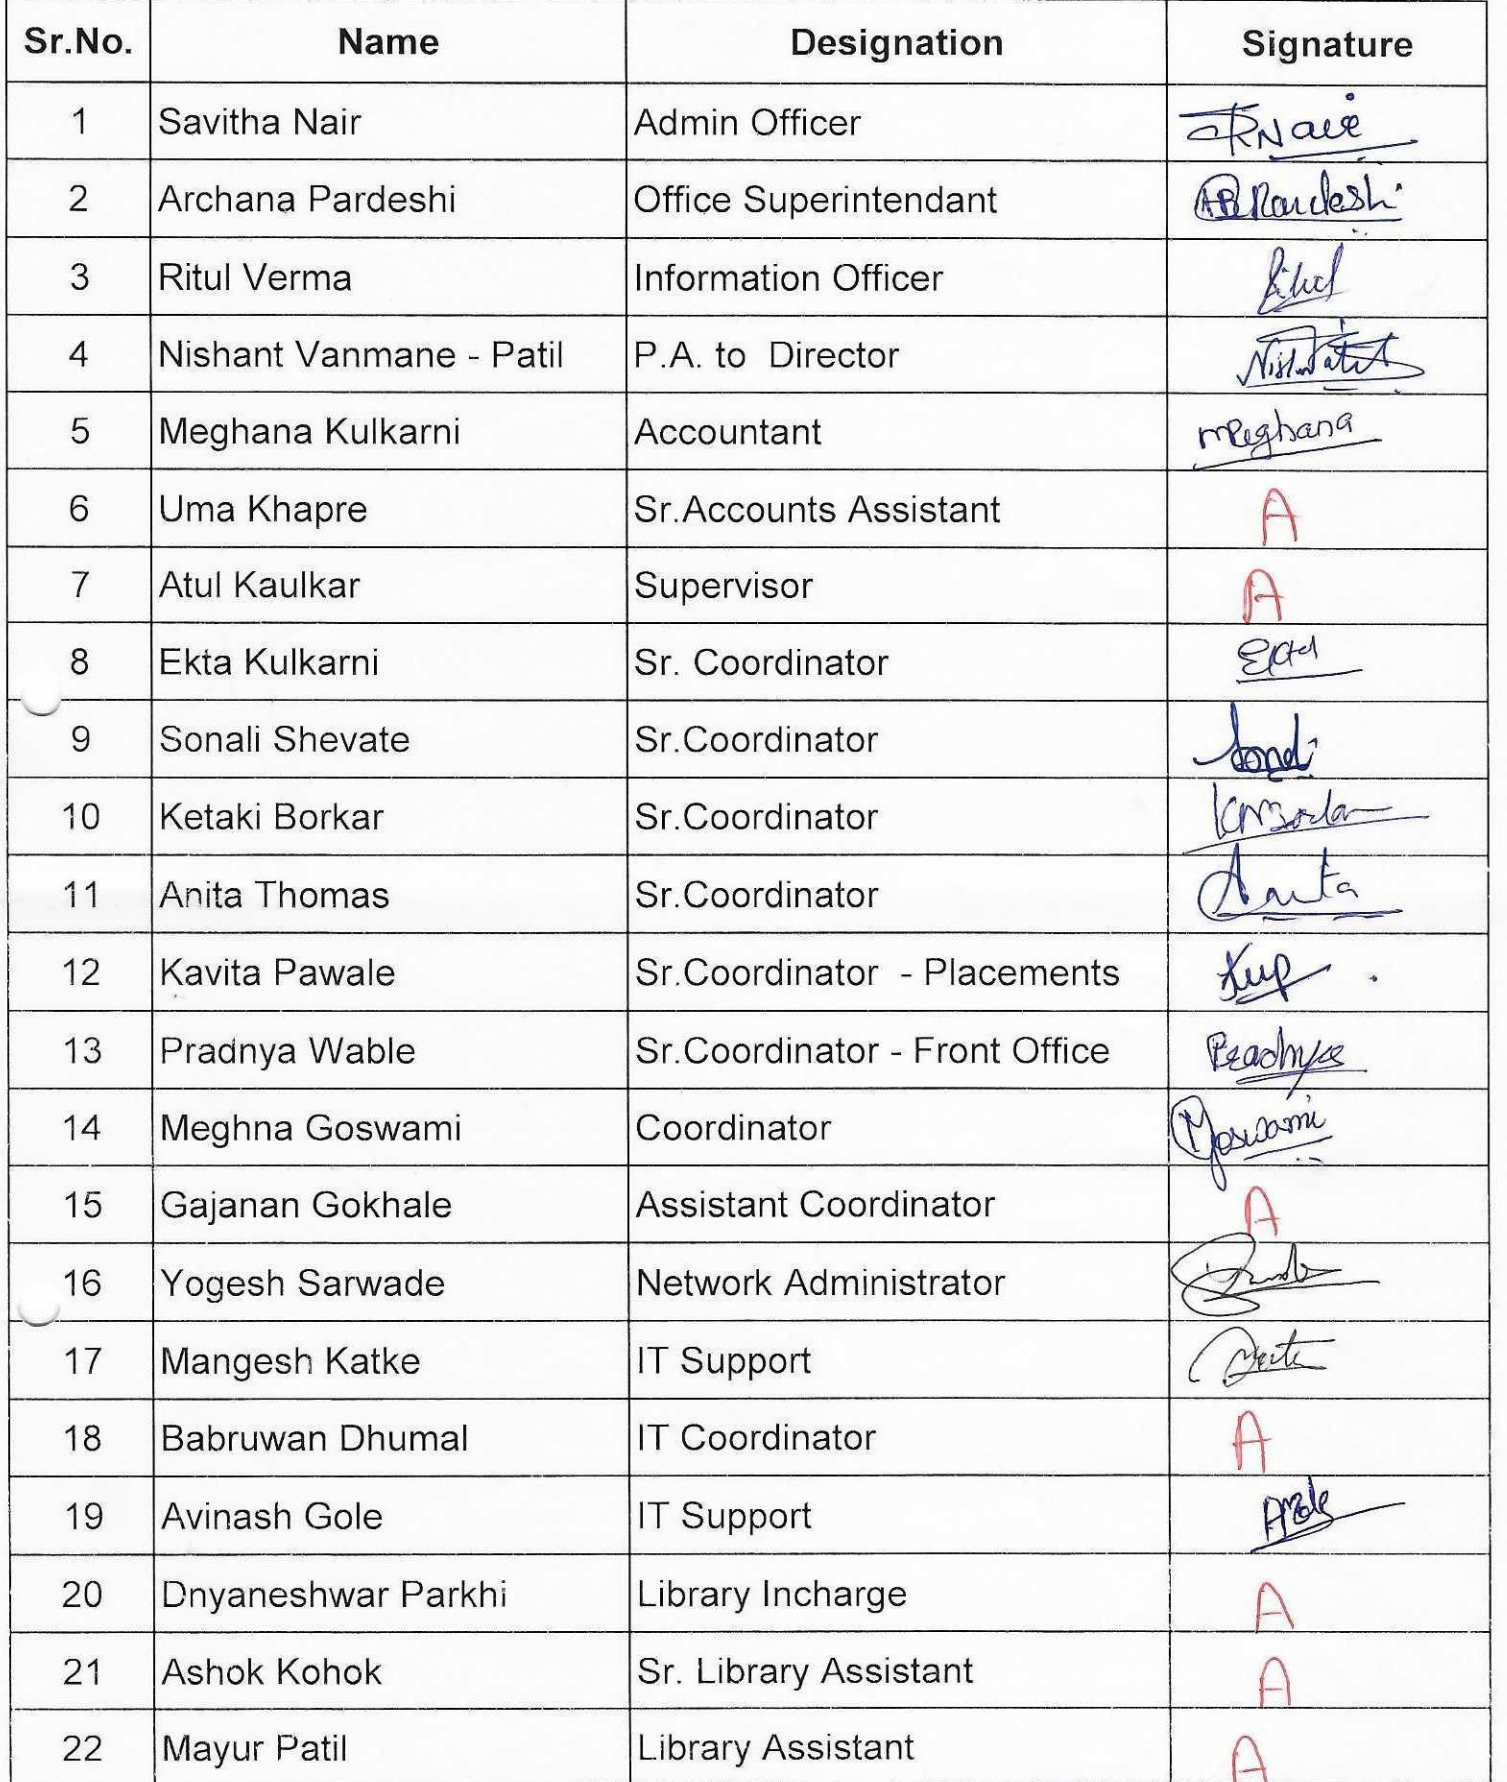 Sr.No. Name Designation Signature
1 Savitha Nair Admin Officer SRNair
2 Archana Pardeshi Office Superintendant ABPardeshi
3 Ritul Verma Information Officer Ritul
4 Nishant Vanmane - Patil P.A. to Director
5 Meghana Kulkarni Accountant Meghana
6 Uma Khapre Sr.Accounts Assistant A
7 Atul Kaulkar Supervisor A
8 Ekta Kulkarni Sr. Coordinator Ekta
9 Sonali Shevate Sr.Coordinator
10 Ketaki Borkar Sr.Coordinator
11 Anita Thomas Sr.Coordinator Anita
12 Kavita Pawale Sr.Coordinator - Placements
13 Pradnya Wable Sr.Coordinator - Front Office Pradnya
14 Meghna Goswami Coordinator MGoswami
15 Gajanan Gokhale Assistant Coordinator A
16 Yogesh Sarwade Network Administrator
17 Mangesh Katke IT Support
18 Babruwan Dhumal IT Coordinator A
19 Avinash Gole IT Support
20 Dnyaneshwar Parkhi Library Incharge A
21 Ashok Kohok Sr. Library Assistant A
22 Mayur Patil Library Assistant A